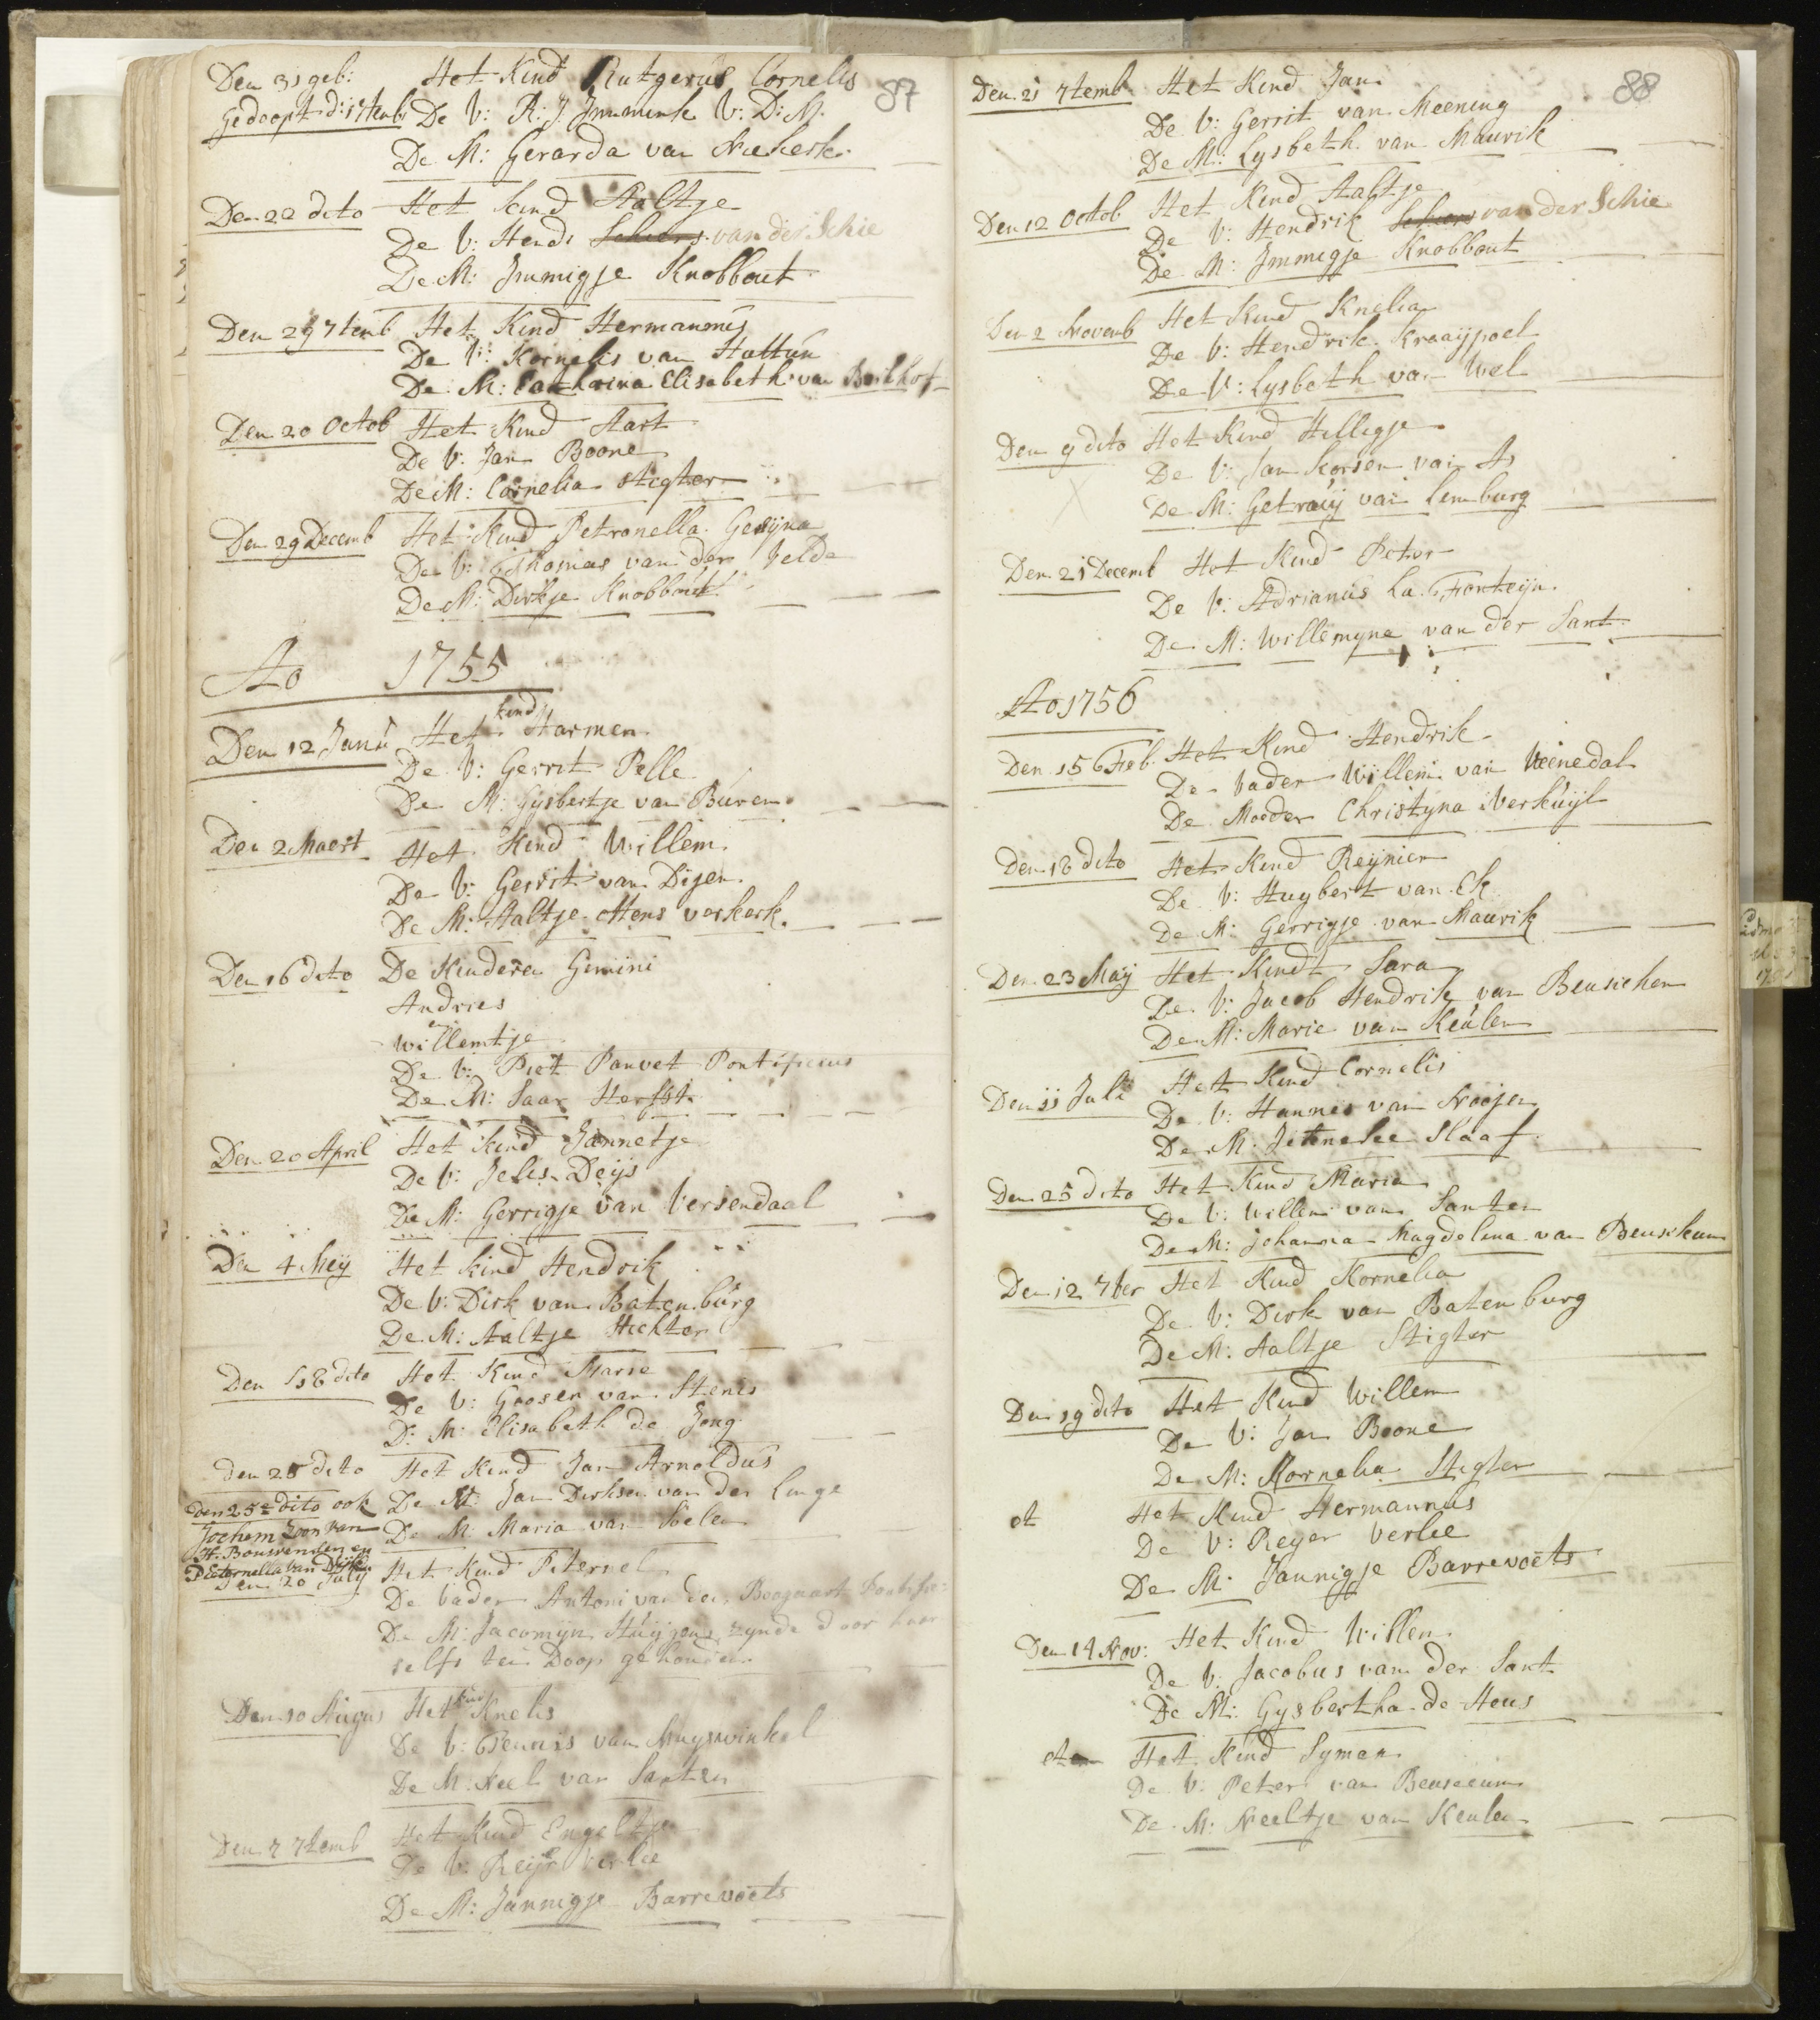 87
Den 31 geb: Het Kind Rutgerus Cornelis
Gedoopt d: 1 7temb: De V: R: J: Immink V: D: M:
De M: Gerarda van Niekerk
Den 22 dito Het kind Aaltje
De V: Hendr Schiers van der Schie
De M: Jmmigje Knobbout
Den 29 7temb Het Kind Hermannus
De V: Kornelis van Hattun
De M: Catharina Elisabeth van
Den 20 Octob Het Kind Aart
De V: Jan Boone
De M: Cornelia Stigter
Den 29 Decemb Het Kind Petronella Gesijna
De V: Thomas van der Velde
De M: Dirkje Knobbout
Ao 1755
Den 12 Janu Het kind Harmen
De V: Gerrit Pelle
De M: Gysbertje van Buren
Den 2 Maert Het Kind Willem
De V: Gerrit van Dijen
De M: Aaltje Otens verkerk
Den 16 dito De Kinderen Gemini
Andries
en
Willemtje
De V: Piet Panvet Pontificius
De M: Saar Herfst
Den 20 April Het kind Jannetje
De V: Jelis Deijs
De M: Gerrigje van Versendaal
Den 4 Meij Het kind Hendrik
De V: Dirk van Batenburg
De M: Aaltje Stichter
Den 18 dito Het Kind Marie
De V: Goosen van Stenis
D: M: Elisabeth de Jong
den 25 dito Het Kind Jan Arnoldus
De V: Jan Dirksen van der Linge
De M: Maria van Soelen
Den 25e dito ook
Jochem zoon van
H. Bouwensen en
Peternella van Dijk
Den 20 July Het Kind Peternel
De Vader Antoni van den Boogaart
De M: Jacomijn zynde door haar
selfs ten Doop gehouden
Den 10 Augus Het kind Knelis
De V: Teunis van Muyswinkel
De M: Neel van Santen
Den 7 7temb Het Kind Engeltje
De V: Reijer Verlee
De M: Jannigje Barrevoets
88
Den 21 7temb Het Kind Jan
De V: Gerrit van Meening
De M: Lysbeth van Maurik
Den 12 Octob Het Kind Aaltje
De V: Hendrik Schiers van der Schie
De M: Jmmigje Knobbout
Den 2 Novemb Het Kind Knelia
De V: Hendrik Kraaijpoel
De V: Lysbeth van Wel
Den 9 dito Het Kind Hilligje
De V: Jan Korsen van As
De M: Getruij van Limburg
Den 21 Decemb Het Kind Peter
De V: Adrianus La Fonteijn
De M: Willemyne van der Sant
Ao 1756
Den 15 Feb. Het Kind Hendrik
De Vader Willem van Veenedal
De Moeder Christyna Verkuijl
Den 18 dito Het Kind Reijnier
De V: Huybert van Ek
De M: Gerrigje van Maurik
Den 23 Maij Het Kindt Sara
De V: Jacob Hendrik van Beusichem
De M: Marie van Keulen
Den 11 Juli Het Kind Cornelis
De V: Hannes van Nooijen
De M: Slaaf
Den 25 dito Het Kind Maria
De V: Willem van Santen
De M: Johanna Magdelena van Beusikum
Den 12 7ber Het Kind Kornelia
De V: Dirk van Batenburg
De M: Aaltje Stigter
Den 19 dito Het Kind Willem
De V: Jan Boone
De M: Kornelia Stigter
et Het Kind Hermannus
De V: Reyer Verlee
De M: Jannigje Barrevoets
Den 14 Nov: Het Kind Willem
De V: Jacobus van der Sant
De M: Gysbertha de Heus
et Het Kind Symen
De V: Peter van Beuseeum
De M: Neeltje van Keulen